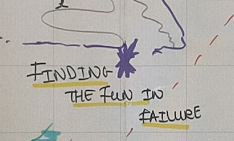 FINDING
THE FUN IN
FAILURE